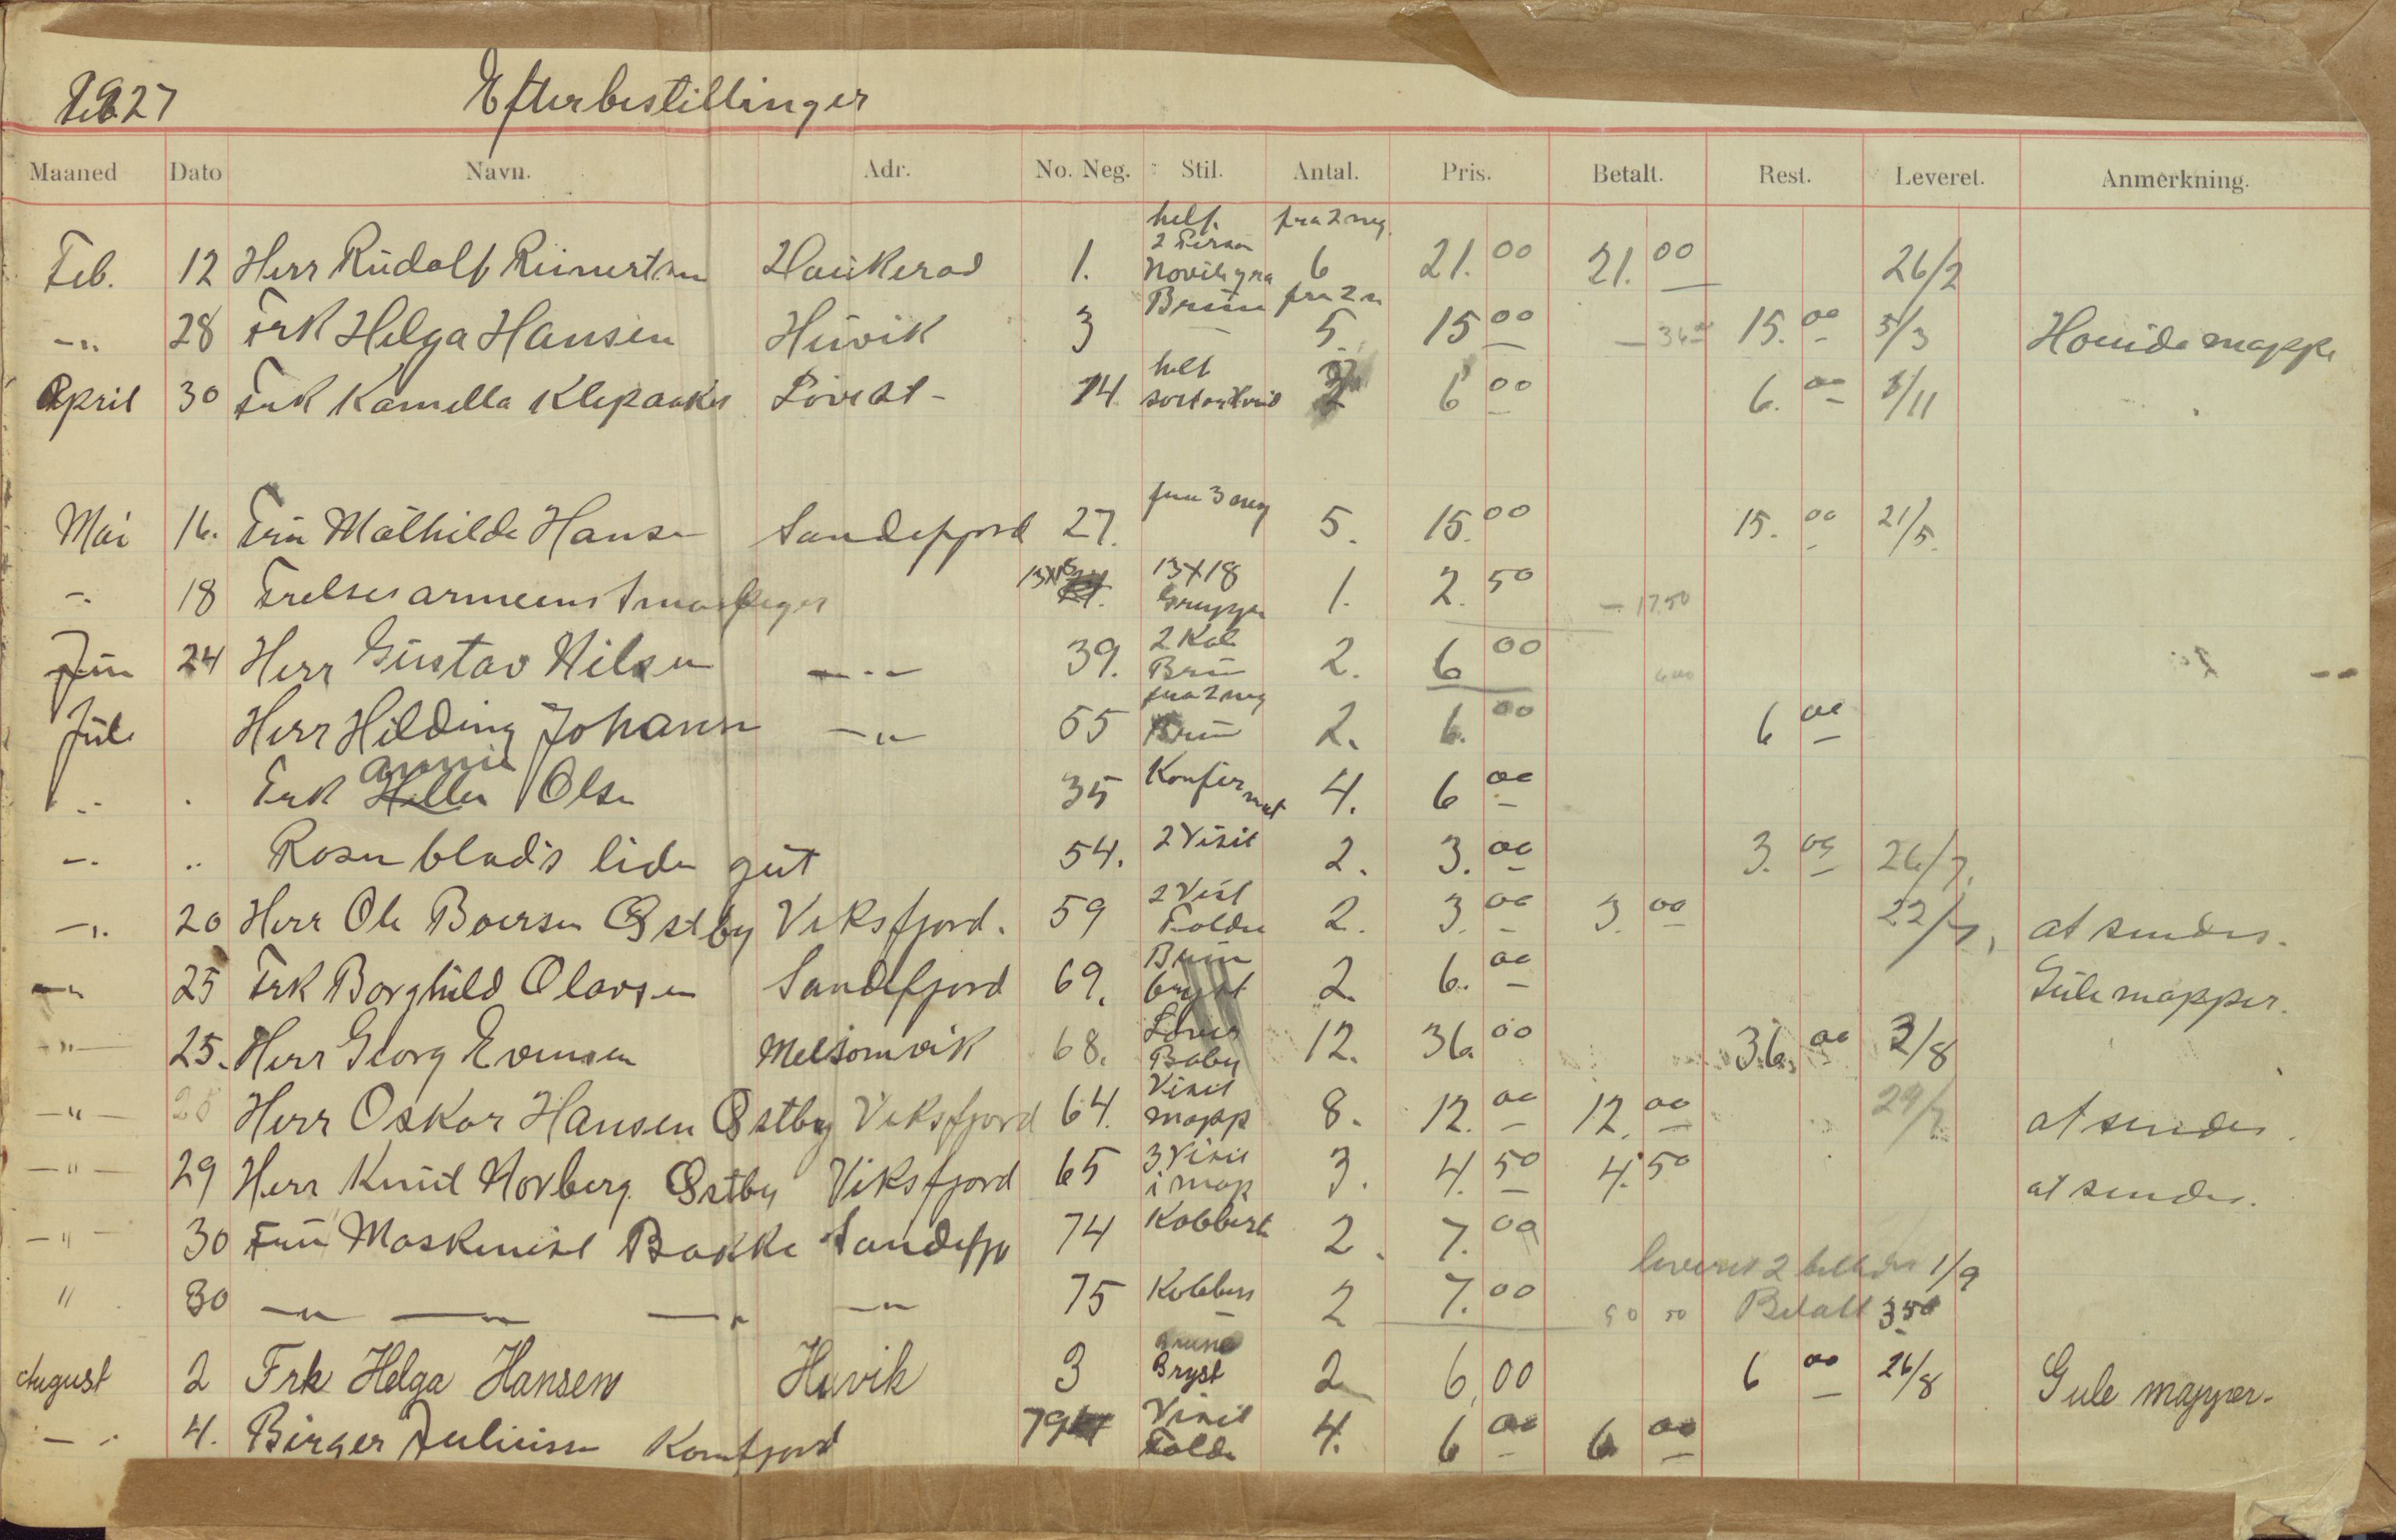 1927 Efterbestillinger
Maaned Dato Navn. Adr. No. Neg. Stil. Antal. Pris. Betalt. Rest. Leveret. Anmerkning.
helf. fra 2 neg.
2 Person
Feb. 12 Herr Rudolf Reinertsen Haukerød 1. 6 21.00 21.00 26/2
Brun fra 2 n
-"- 28 Frk Helga Hansen Huvik 3 5. 15 00 - 36 00 15.00 5/3 mappe
helt
April 30 Frk Kamella Klepaaker 14. 2 6 00 6.00 /11
fra 3 neg
Mai 16. Fru Mathilde Hansen Sandefjord 27. 5. 15.00 15.00 21/5.
13X18
-"- 18 Frelsesarmeens Gruppe 1. 2.50 - 17.50
2 Kab
Jun 24 Herr Gustav Nilsen -"- 39. Brun 2. 6 00 6 00
fra 2 neg
Juli Herr Hilding Johansen -"- 55 Brun 2. 6.00 6 00
Annie
-"- " Frk Olsen 35 Konfirmat 4. 6 00
-"- " Rosenblad's liden gut 54. 2 Visit 2. 3.00 3.00 26/7.
2 Visit
-"- 20 Herr Ole Boersen Østby Viksfjord. 59 Folder 2. 3.00 3.00 22/7, at sendes.
Brun
-"- 25 Frk Borghild Olavsen Sandefjord 69. bryst 2. 6.00 Gule mapper.
-"- 25. Herr Georg Evensen Melsomvik 68. Baby 12. 36.00 36.00 2/8
Visit
-"- 28 Herr Oskar Hansen Østby Viksfjord 64. mapp 8. 12.00 12.00 29/7 at sendes.
3 Visit
-"- 29 Herr Knut Hovberg Østby Viksfjord 65 i map 3. 4.50 4.50 at sendes.
-"- 30 Fru Maskinist Bakke Sandefjo 74 Kabbinet 2. 7.00
leveret 2 billeder 1/9
" 30 -"- -"- -"- -"- 75 Kabben 2 7.00 50 50 Betalt 3 50
Brune
August 2 Frk Helga Hansen Huvik 3 Bryst 2 6,00 6 00 26/8 Gule mapper.
Visit
-"- 4. Birger Juliussen Kornfjord 79 Folder 4. 6 00 6 00